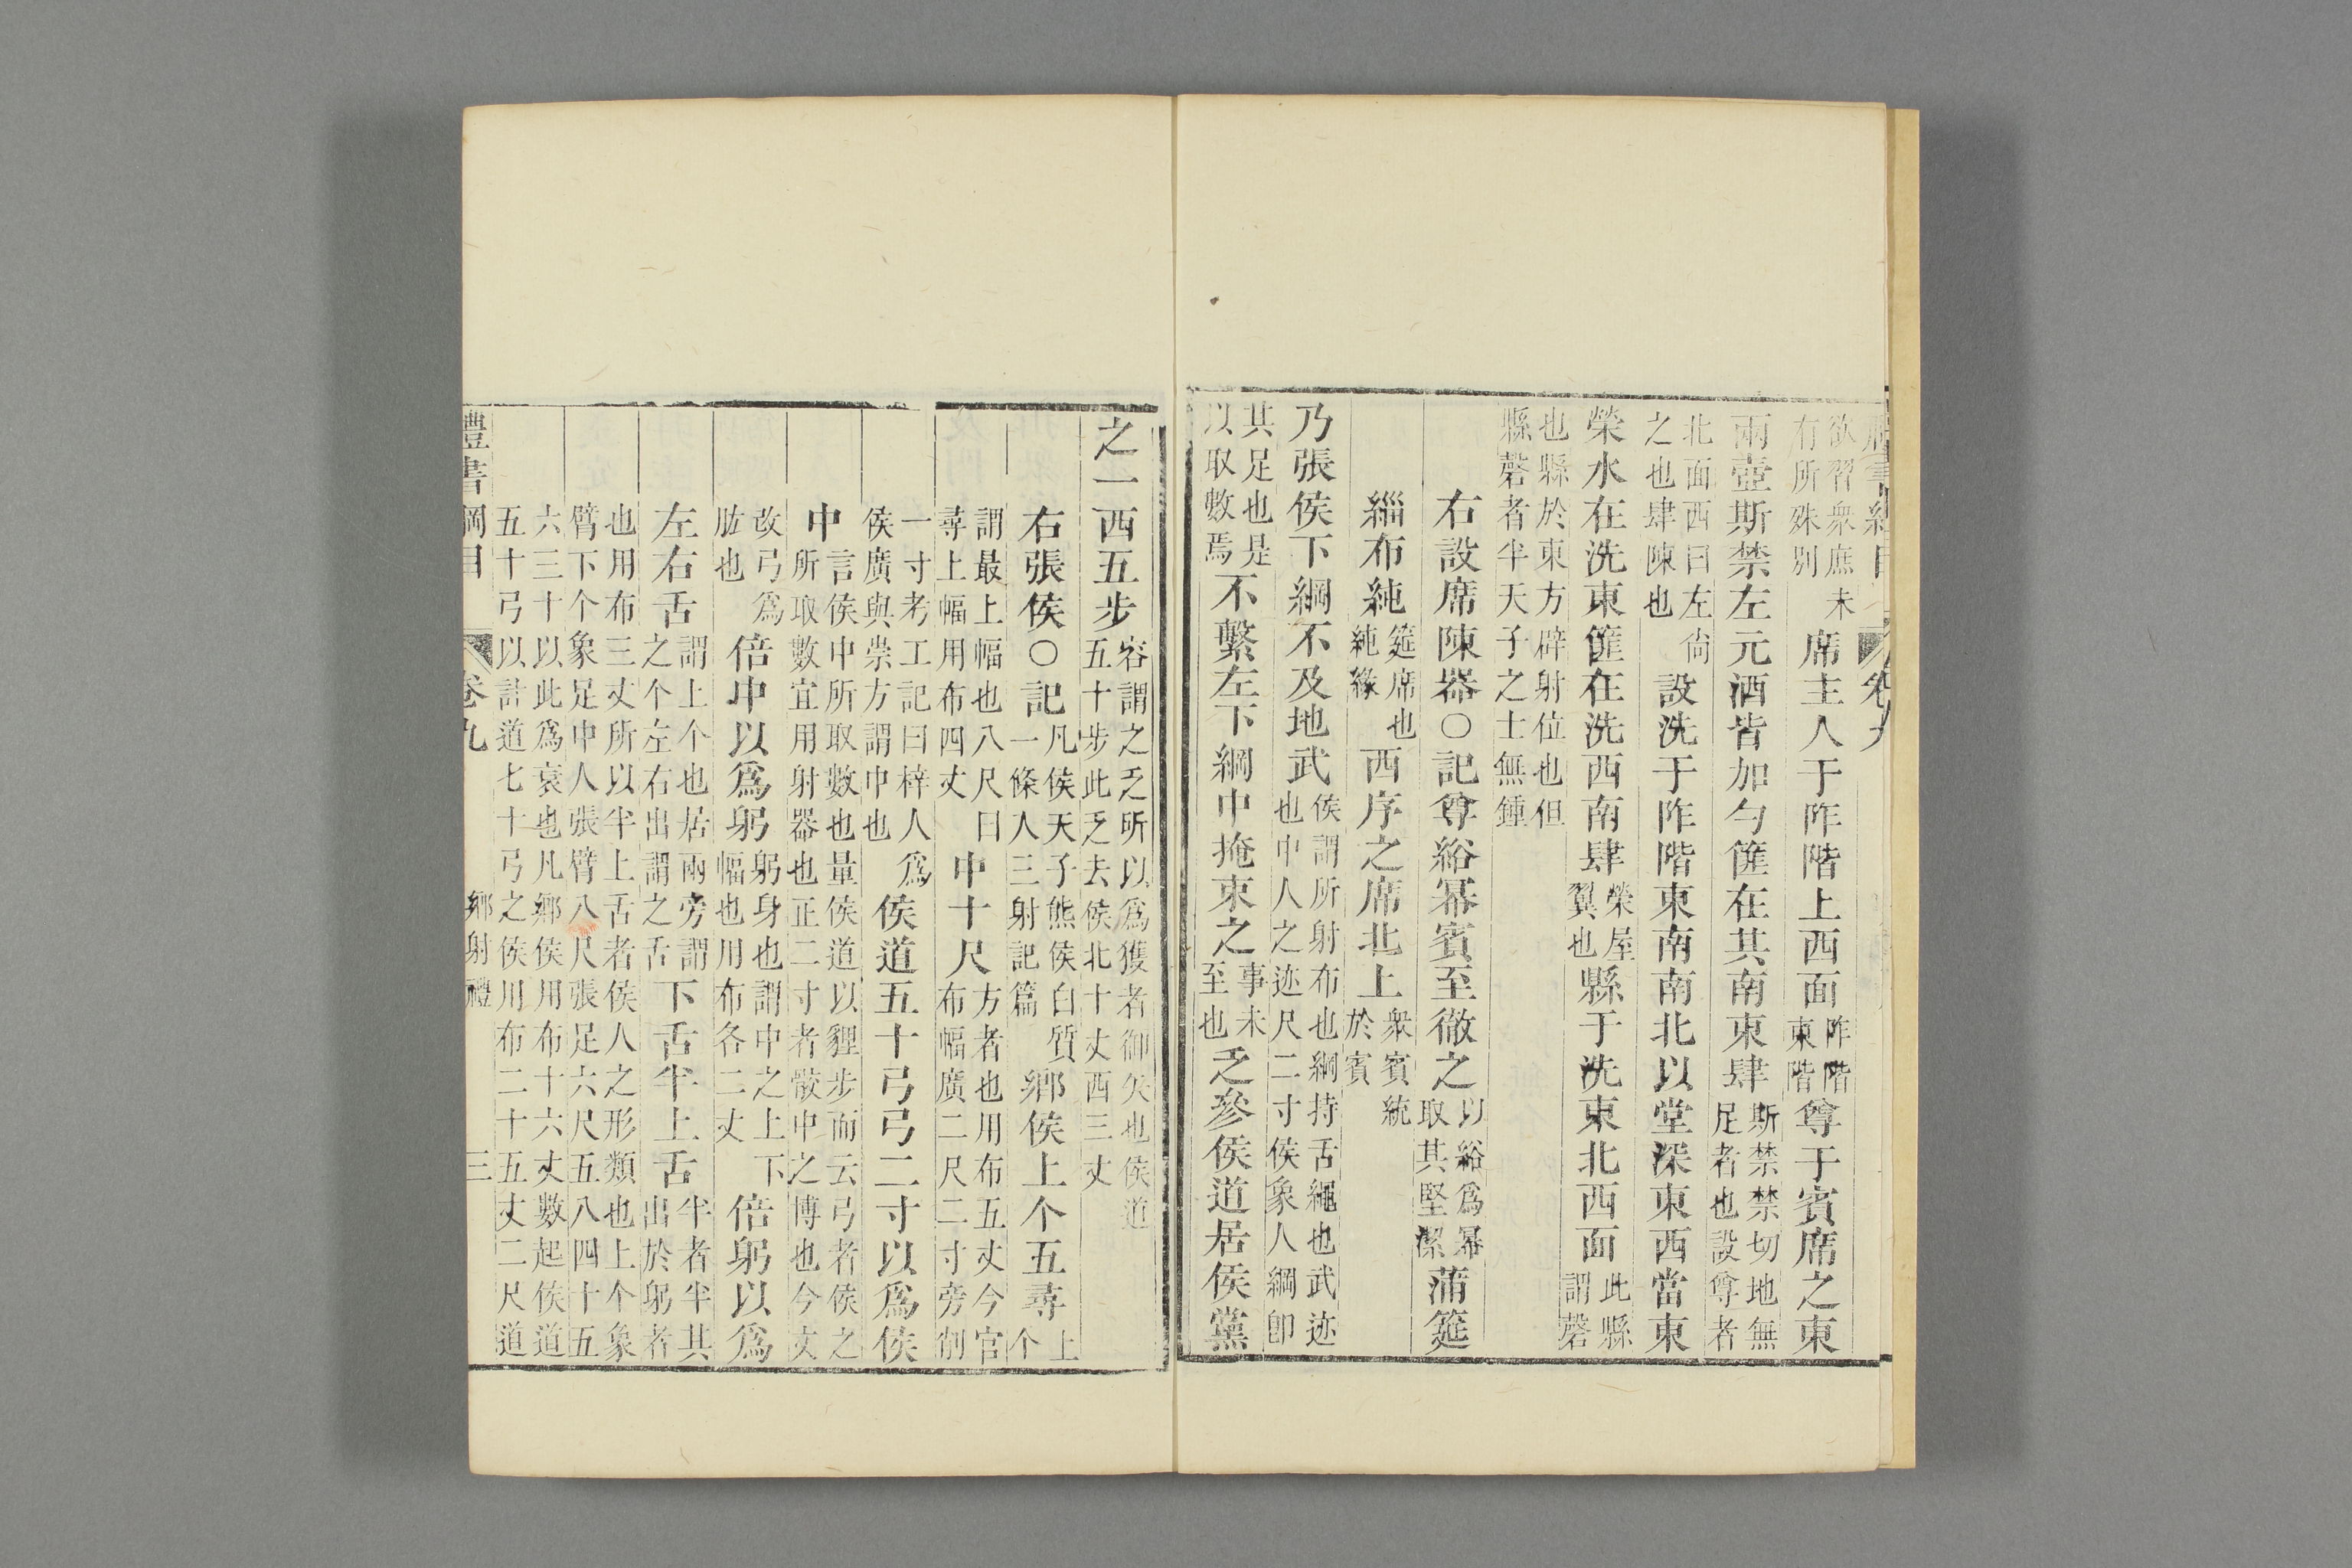 禮書綱目 卷九
欲習衆庶未有所殊別席主人于阼階上西面阼階東階尊于賓席之東
兩壺斯禁左元酒皆加勺篚在其南東肆斯禁禁切地無足者也設尊者
北面西曰左尙之也肆陳也設洗于阼階東南南北以堂深東西當東
榮水在洗東篚在洗西南肆榮屋翼也縣于洗東北西面此縣謂磬
也縣於東方辟射位也但縣磬者半天子之士無鍾
右設席陳器○記尊綌冪賓至徹之以綌爲冪取其堅潔蒲筵
緇布純筵席也純緣西序之席北上衆賓統於賓
乃張侯下綱不及地武侯謂所射布也綱持舌繩也武迹也中人之迹尺二寸侯象人綱卽
其足也是以取數焉不繫左下綱中掩束之事未至也乏參侯道居侯黨
之一西五步容謂之乏所以爲獲者御矢也侯道五十步此乏去侯北十丈西三丈
右張侯○記凡侯天子熊侯白質一條人三射記篇鄉侯上个五尋上个
謂最上幅也八尺曰尋上幅用布四丈中十尺方者也用布五丈今官布幅廣二尺二寸旁削
一寸考工記曰梓人爲侯廣與崇方謂中也侯道五十弓弓二寸以爲侯
中言侯中所取數也量侯道以貍步而云弓者侯之所取數宜用射器也正二寸者骹中之博也今文
改弓爲肱也倍中以爲躬躬身也謂中之上下幅也用布各二丈倍躬以爲
左右舌謂上个也居兩旁謂之个左右出謂之舌下舌半上舌半者半其出於躬者
也用布三丈所以半上舌者侯人之形類也上个象臂下个象足中人張臂八尺張足六尺五八四十五
六三十以此爲衰也凡鄉侯用布十六丈數起侯道五十弓以計道七十弓之侯用布二十五丈二尺道
禮書綱目 卷九 鄉射禮 三